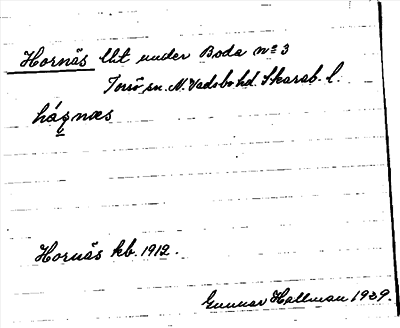 Hornäs lht under Boda nº 3
Torsö sn. N. Vadsbo hd. Skarab. l.
hág̨næs
Hornäs kb. 1912.
Gunnar Hallman 1939.